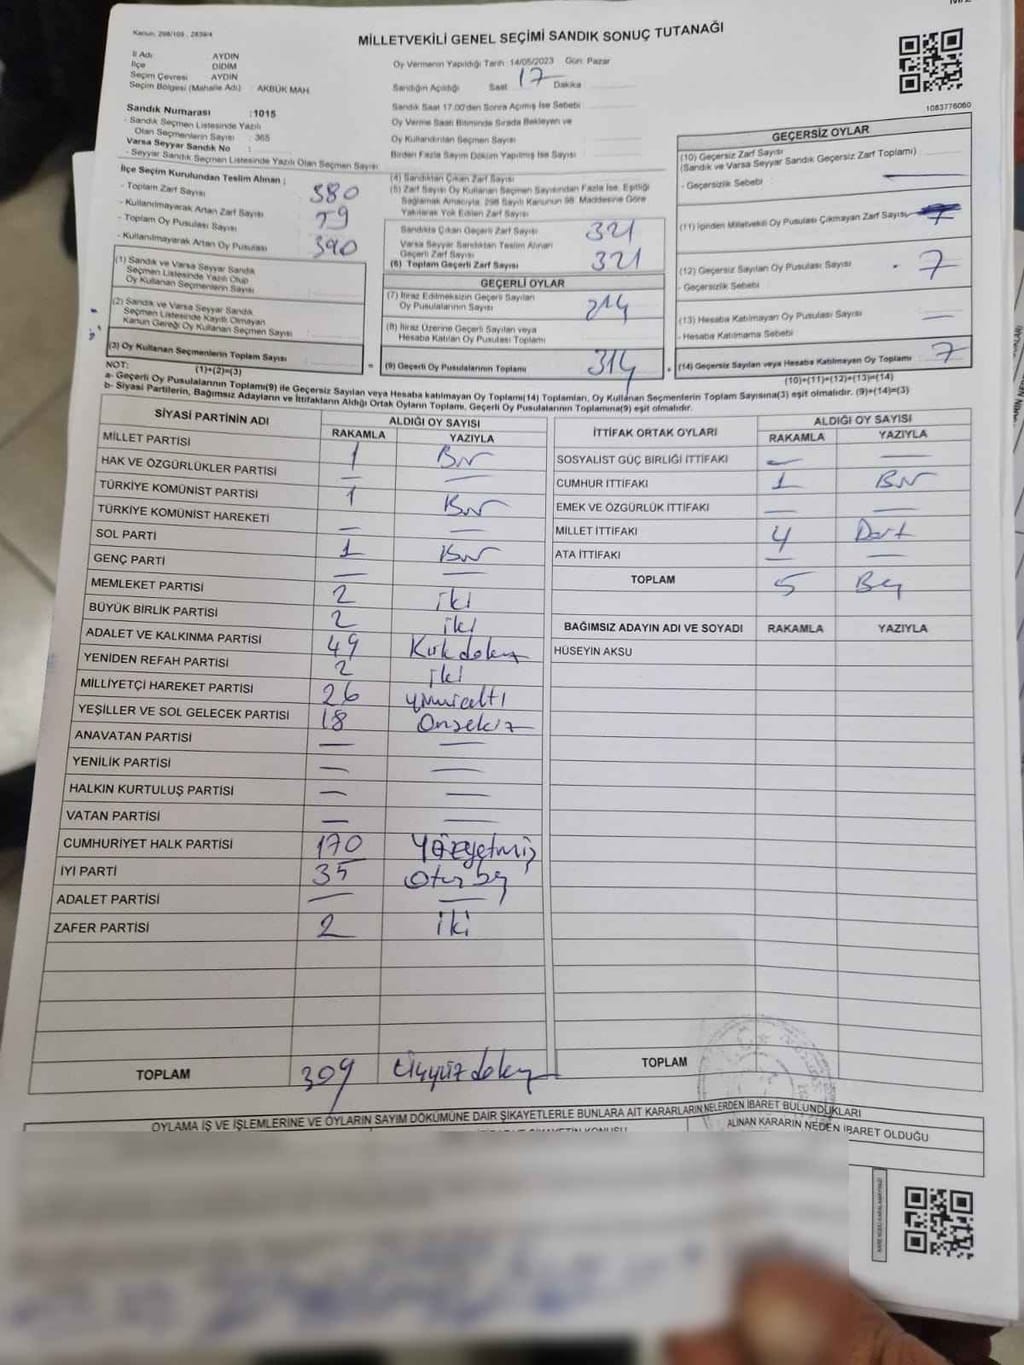 Kanun: 298/105 , 2839/4
MİLLETVEKİLİ GENEL SEÇİMİ SANDIK SONUÇ TUTANAĞI
İl Adı : AYDIN
İlçe DİDİM
Seçim Çevresi AYDIN
Seçim Bölgesi (Mahalle Adı) : AKBÜK MAH.
Sandık Numarası :1015
- Sandık Seçmen Listesinde Yazılı
Olan Seçmenlerin Sayısı : 365
Varsa Seyyar Sandık No :
- Seyyar Sandık Seçmen Listesinde Yazılı Olan Seçmen Sayısı
İlçe Seçim Kurulundan Teslim Alınan ;
- Toplam Zarf Sayısı 380
- Kullanılmayarak Artan Zarf Sayısı 59
- Toplam Oy Pusulası Sayısı 390
- Kullanılmayarak Artan Oy Pusulası
(1) Sandık ve Varsa Seyyar Sandık
Seçmen Listesinde Yazılı Olup
Oy Kullanan Seçmenlerin Sayısı
(2) Sandık ve Varsa Seyyar Sandık
Seçmen Listesinde Kayıtlı Olmayan
Kanun Gereği Oy Kullanan Seçmen Sayısı
(3) Oy Kullanan Seçmenlerin Toplam Sayısı
(1)+(2)=(3)
Oy Vermenin Yapıldığı Tarih :14/05/2023 Gün: Pazar
Sandığın Açıldığı Saat 17 Dakika
Sandık Saat 17.00'den Sonra Açılmış İse Sebebi
Oy Verme Saati Bitiminde Sırada Bekleyen ve
Oy Kullandırılan Seçmen Sayısı
Birden Fazla Sayım Döküm Yapılmış İse Sayısı :
(4) Sandıktan Çıkan Zarf Sayısı
(5) Zarf Sayısı Oy Kullanan Seçmen Sayısından Fazla İse, Eşitliği
Sağlamak Amacıyla, 298 Sayılı Kanunun 98. Maddesine Göre
Yakılarak Yok Edilen Zarf Sayısı
Sandıkta Çıkan Geçerli Zarf Sayısı 321
Varsa Seyyar Sandıktan Teslim Alınan
Geçerli Zarf Sayısı
(6) Toplam Geçerli Zarf Sayısı 321
GEÇERLİ OYLAR
(7) İtiraz Edilmeksizin Geçerli Sayılan
Oy Pusulalarının Sayısı 314
(8) İtiraz Üzerine Geçerli Sayılan veya
Hesaba Katılan Oy Pusulası Toplamı
= (9) Geçerli Oy Pusulalarının Toplamı 314 +
1083776060
GEÇERSİZ OYLAR
(10) Geçersiz Zarf Sayısı
(Sandık ve Varsa Seyyar Sandık Geçersiz Zarf Toplamı)
- Geçersizlik Sebebi —
(11) İçinden Milletvekili Oy Pusulası Çıkmayan Zarf Sayısı
(12) Geçersiz Sayılan Oy Pusulası Sayısı 7
- Geçersizlik Sebebi
(13) Hesaba Katılmayan Oy Pusulası Sayısı —
- Hesaba Katılmama Sebebi
(14) Geçersiz Sayılan veya Hesaba Katılmayan Oy Toplamı 7
(10)+(11)+(12)+(13)=(14)
NOT:
a- Geçerli Oy Pusulalarının Toplamı(9) ile Geçersiz Sayılan veya Hesaba katılmayan Oy Toplamı(14) Toplamları, Oy Kullanan Seçmenlerin Toplam Sayısına(3) eşit olmalıdır. (9)+(14)=(3)
b- Siyasi Partilerin, Bağımsız Adayların ve İttifakların Aldığı Ortak Oyların Toplamı, Geçerli Oy Pusulalarının Toplamına(9) eşit olmalıdır.
SİYASİ PARTİNİN ADI ALDIĞI OY SAYISI
RAKAMLA YAZIYLA
MİLLET PARTİSİ 1 Bir
HAK VE ÖZGÜRLÜKLER PARTİSİ — —
TÜRKİYE KOMÜNİST PARTİSİ 1 Bir
TÜRKİYE KOMÜNİST HAREKETİ — —
SOL PARTİ 1 Bir
GENÇ PARTİ — —
MEMLEKET PARTİSİ 2 iki
BÜYÜK BİRLİK PARTİSİ 2 iki
ADALET VE KALKINMA PARTİSİ 49 Kırkdokuz
YENİDEN REFAH PARTİSİ 2 iki
MİLLİYETÇİ HAREKET PARTİSİ 26 yirmialtı
YEŞİLLER VE SOL GELECEK PARTİSİ 18 Onsekiz
ANAVATAN PARTİSİ — —
YENİLİK PARTİSİ — —
HALKIN KURTULUŞ PARTİSİ — —
VATAN PARTİSİ — —
CUMHURİYET HALK PARTİSİ 170 Yüzyetmiş
İYİ PARTİ 35 Otuzbeş
ADALET PARTİSİ — —
ZAFER PARTİSİ 2 iki
TOPLAM 309 Üçyüzdokuz
İTTİFAK ORTAK OYLARI ALDIĞI OY SAYISI
RAKAMLA YAZIYLA
SOSYALİST GÜÇ BİRLİĞİ İTTİFAKI — —
CUMHUR İTTİFAKI 1 Bir
EMEK VE ÖZGÜRLÜK İTTİFAKI — —
MİLLET İTTİFAKI 4 Dört
ATA İTTİFAKI — —
TOPLAM 5 Beş
BAĞIMSIZ ADAYIN ADI VE SOYADI RAKAMLA YAZIYLA
HÜSEYİN AKSU
TOPLAM
OYLAMA İŞ VE İŞLEMLERİNE VE OYLARIN SAYIM DÖKÜMÜNE DAİR ŞİKAYETLERLE BUNLARA AİT KARARLARIN NELERDEN İBARET BULUNDUKLARI
ALINAN KARARIN NEDEN İBARET OLDUĞU